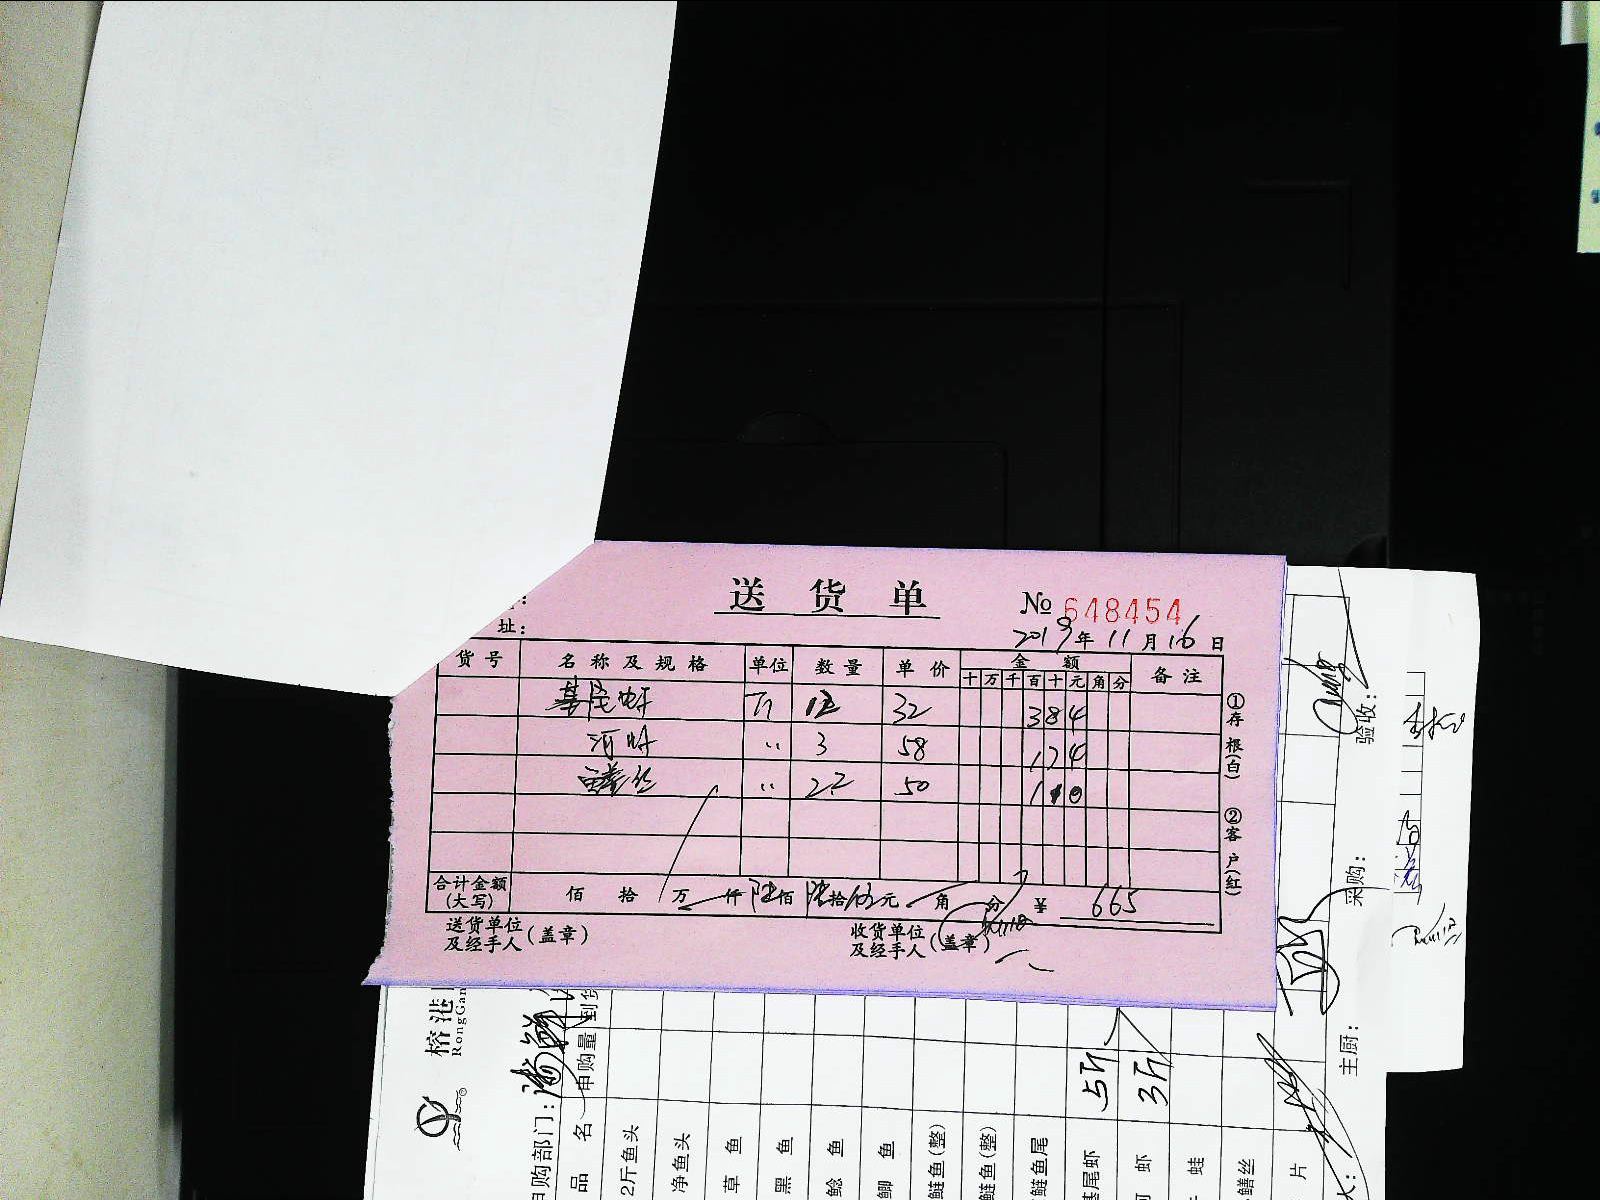 送货单 № 648454
址: 2019年11月16日
货号 名称及规格 单位 数量 单价 金额 备注
十 万 千 百 十 元 角 分
基尾虾 斤 12 32 384
河虾 〃 3 58 174
鳝丝 〃 2.2 50 110
合计金额(大写) 佰 拾 万 仟 陆佰 陆拾 伍元 角 分 ¥ 665
送货单位及经手人(盖章) 收货单位及经手人(盖章)
①存根(白) ②客户(红)
榕港
RongGan
申购部门:
品名 申购量 到货
2斤鱼头
净鱼头
草鱼
黑鱼
鲶鱼
鲫鱼
鲢鱼(整)
鲢鱼(整)
鲢鱼尾
基尾虾 5斤
河虾 3斤
蛙
鳝丝
片
主厨:
采购:
验收: